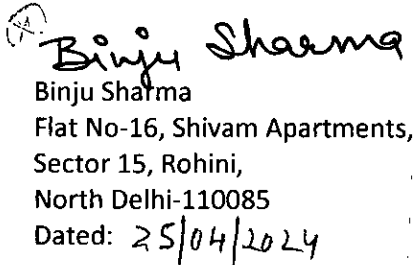 Binju Sharma
Binju Sharma
Flat No-16, Shivam Apartments,
Sector 15, Rohini,
North Delhi-110085
Dated: 25/04/2024